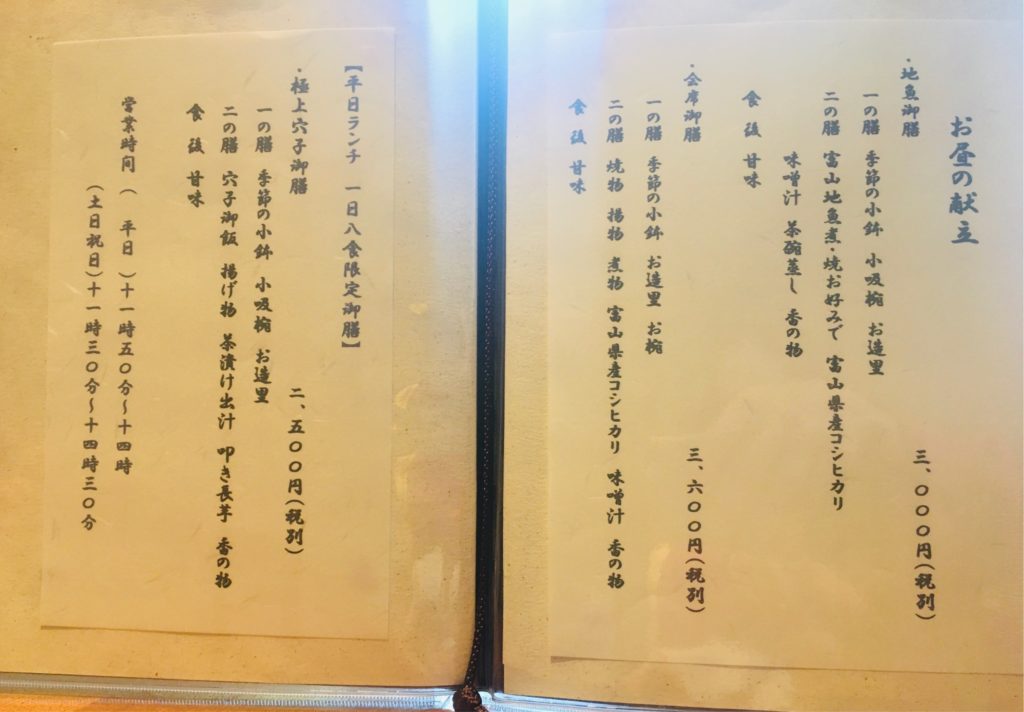 お昼の献立
・地魚御膳 三、〇〇〇円(税別)
一の膳 季節の小鉢 小吸椀 お造里
二の膳 富山地魚煮・焼お好みで 富山県産コシヒカリ
味噌汁 茶碗蒸し 香の物
食後 甘味
・会席御膳 三、六〇〇円(税別)
一の膳 季節の小鉢 お造里 お椀
二の膳 焼物 揚物 煮物 富山県産コシヒカリ 味噌汁 香の物
食後 甘味
【平日ランチ 一日八食限定御膳】
・極上穴子御膳 二、五〇〇円(税別)
一の膳 季節の小鉢 小吸椀 お造里
二の膳 穴子御飯 揚げ物 茶漬け出汁 叩き長芋 香の物
食後 甘味
営業時間 ( 平日 )十一時五〇分〜十四時
(土日祝日)十一時三〇分〜十四時三〇分